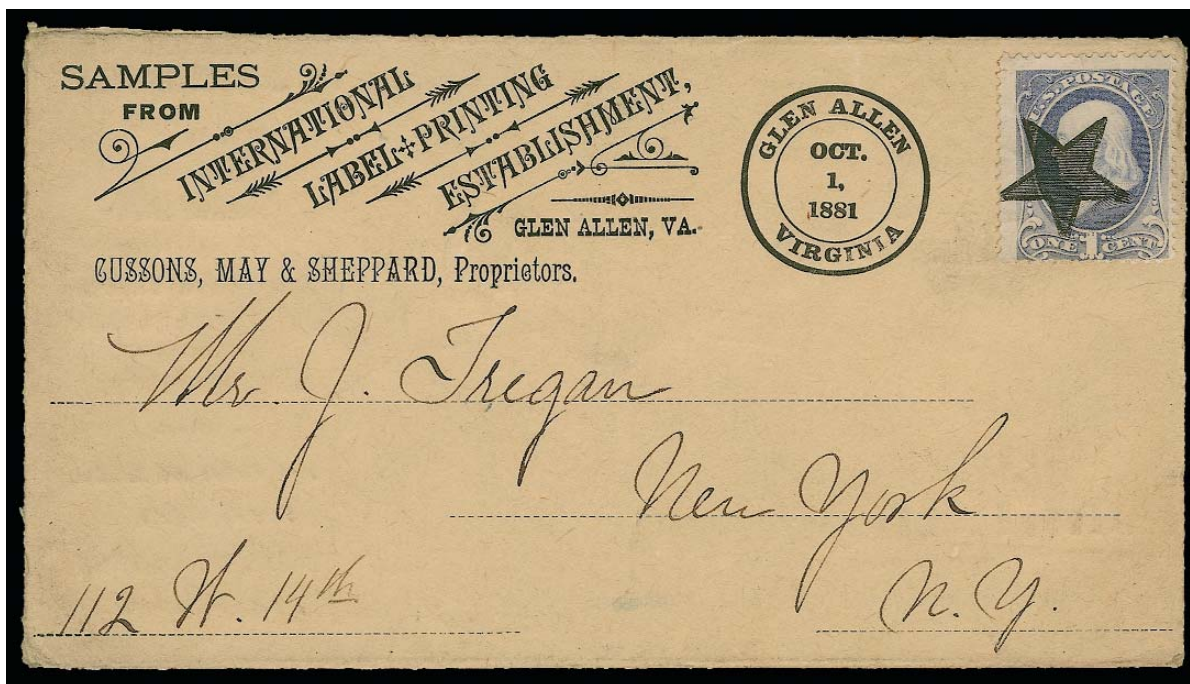 SAMPLES
FROM
INTERNATIONAL
LABEL PRINTING
ESTABLISHMENT,
GLEN ALLEN, VA.
CUSSONS, MAY & SHEPPARD, Proprietors.
GLEN ALLEN
OCT.
1,
1881
VIRGINIA
U.S. POSTAGE
ONE 1 CENT
Mr. J. Tregan
New York
112 W. 14th
N. Y.